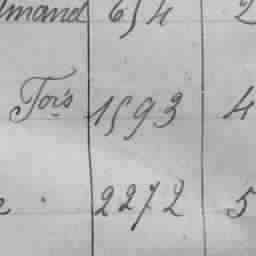 lmand 654 2
Tois 1593 4
e . 2272 5